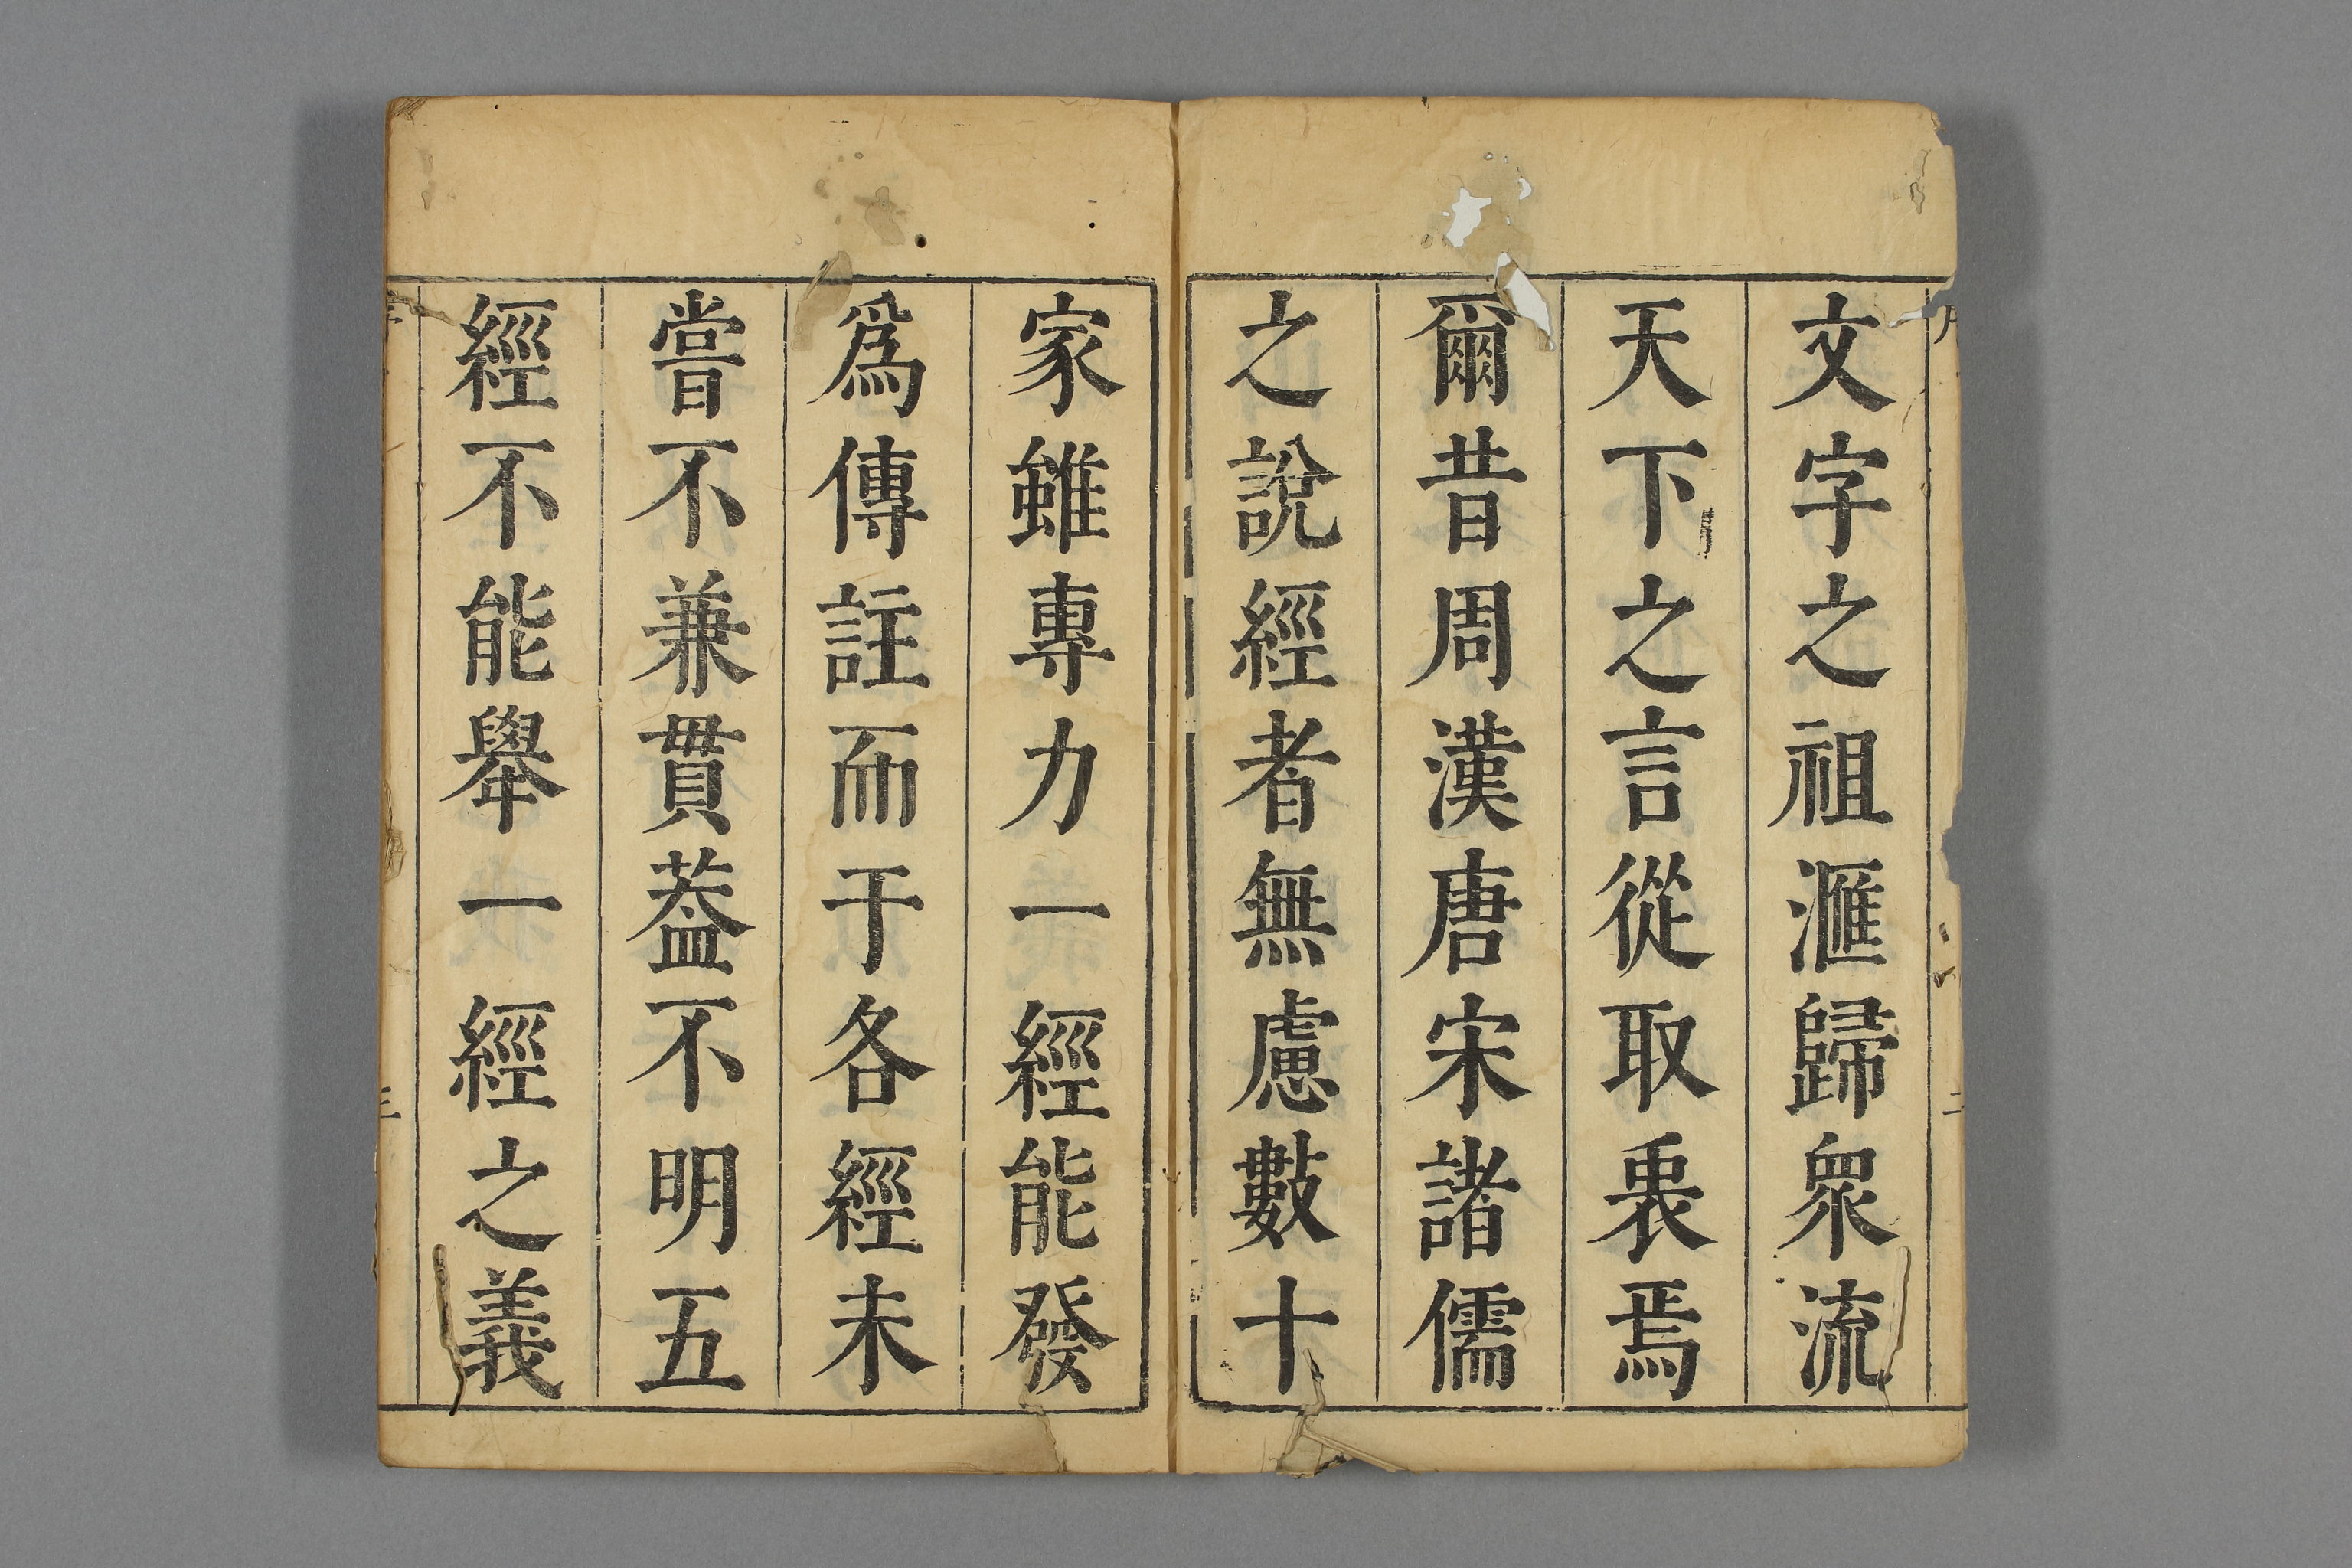 文字之祖滙歸衆流
天下之言從取衷焉
爾昔周漢唐宋諸儒
之說經者無慮數十
二
家雖專力一經能發
爲傳註而于各經未
嘗不兼貫葢不明五
經不能舉一經之義
三